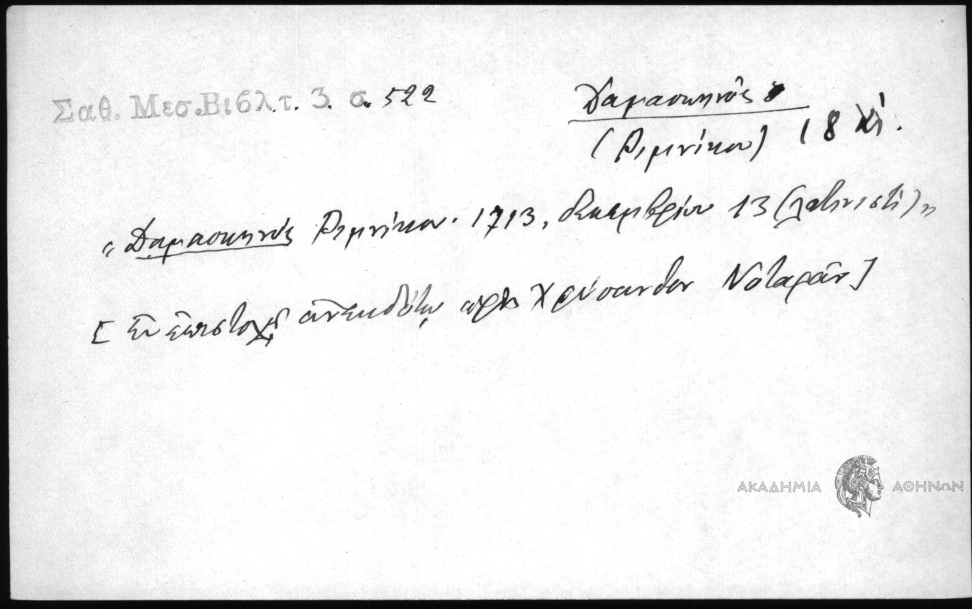 Σαθ. Μεσ. Βιβλ τ. 3. σ. 522
Δαμασκηνὸς ὁ
(Ριμνίκου) 18 XI.
«Δαμασκηνὸς Ριμνίκου. 1713, δεκεμβρίου 13 (λατινιστί)»
[Ἐν ἐπιστολῇ ἀνεκδότῳ πρὸς Χρύσανθον Νοταρᾶν]
ΑΚΑΔΗΜΙΑ ΑΘΗΝΩΝ